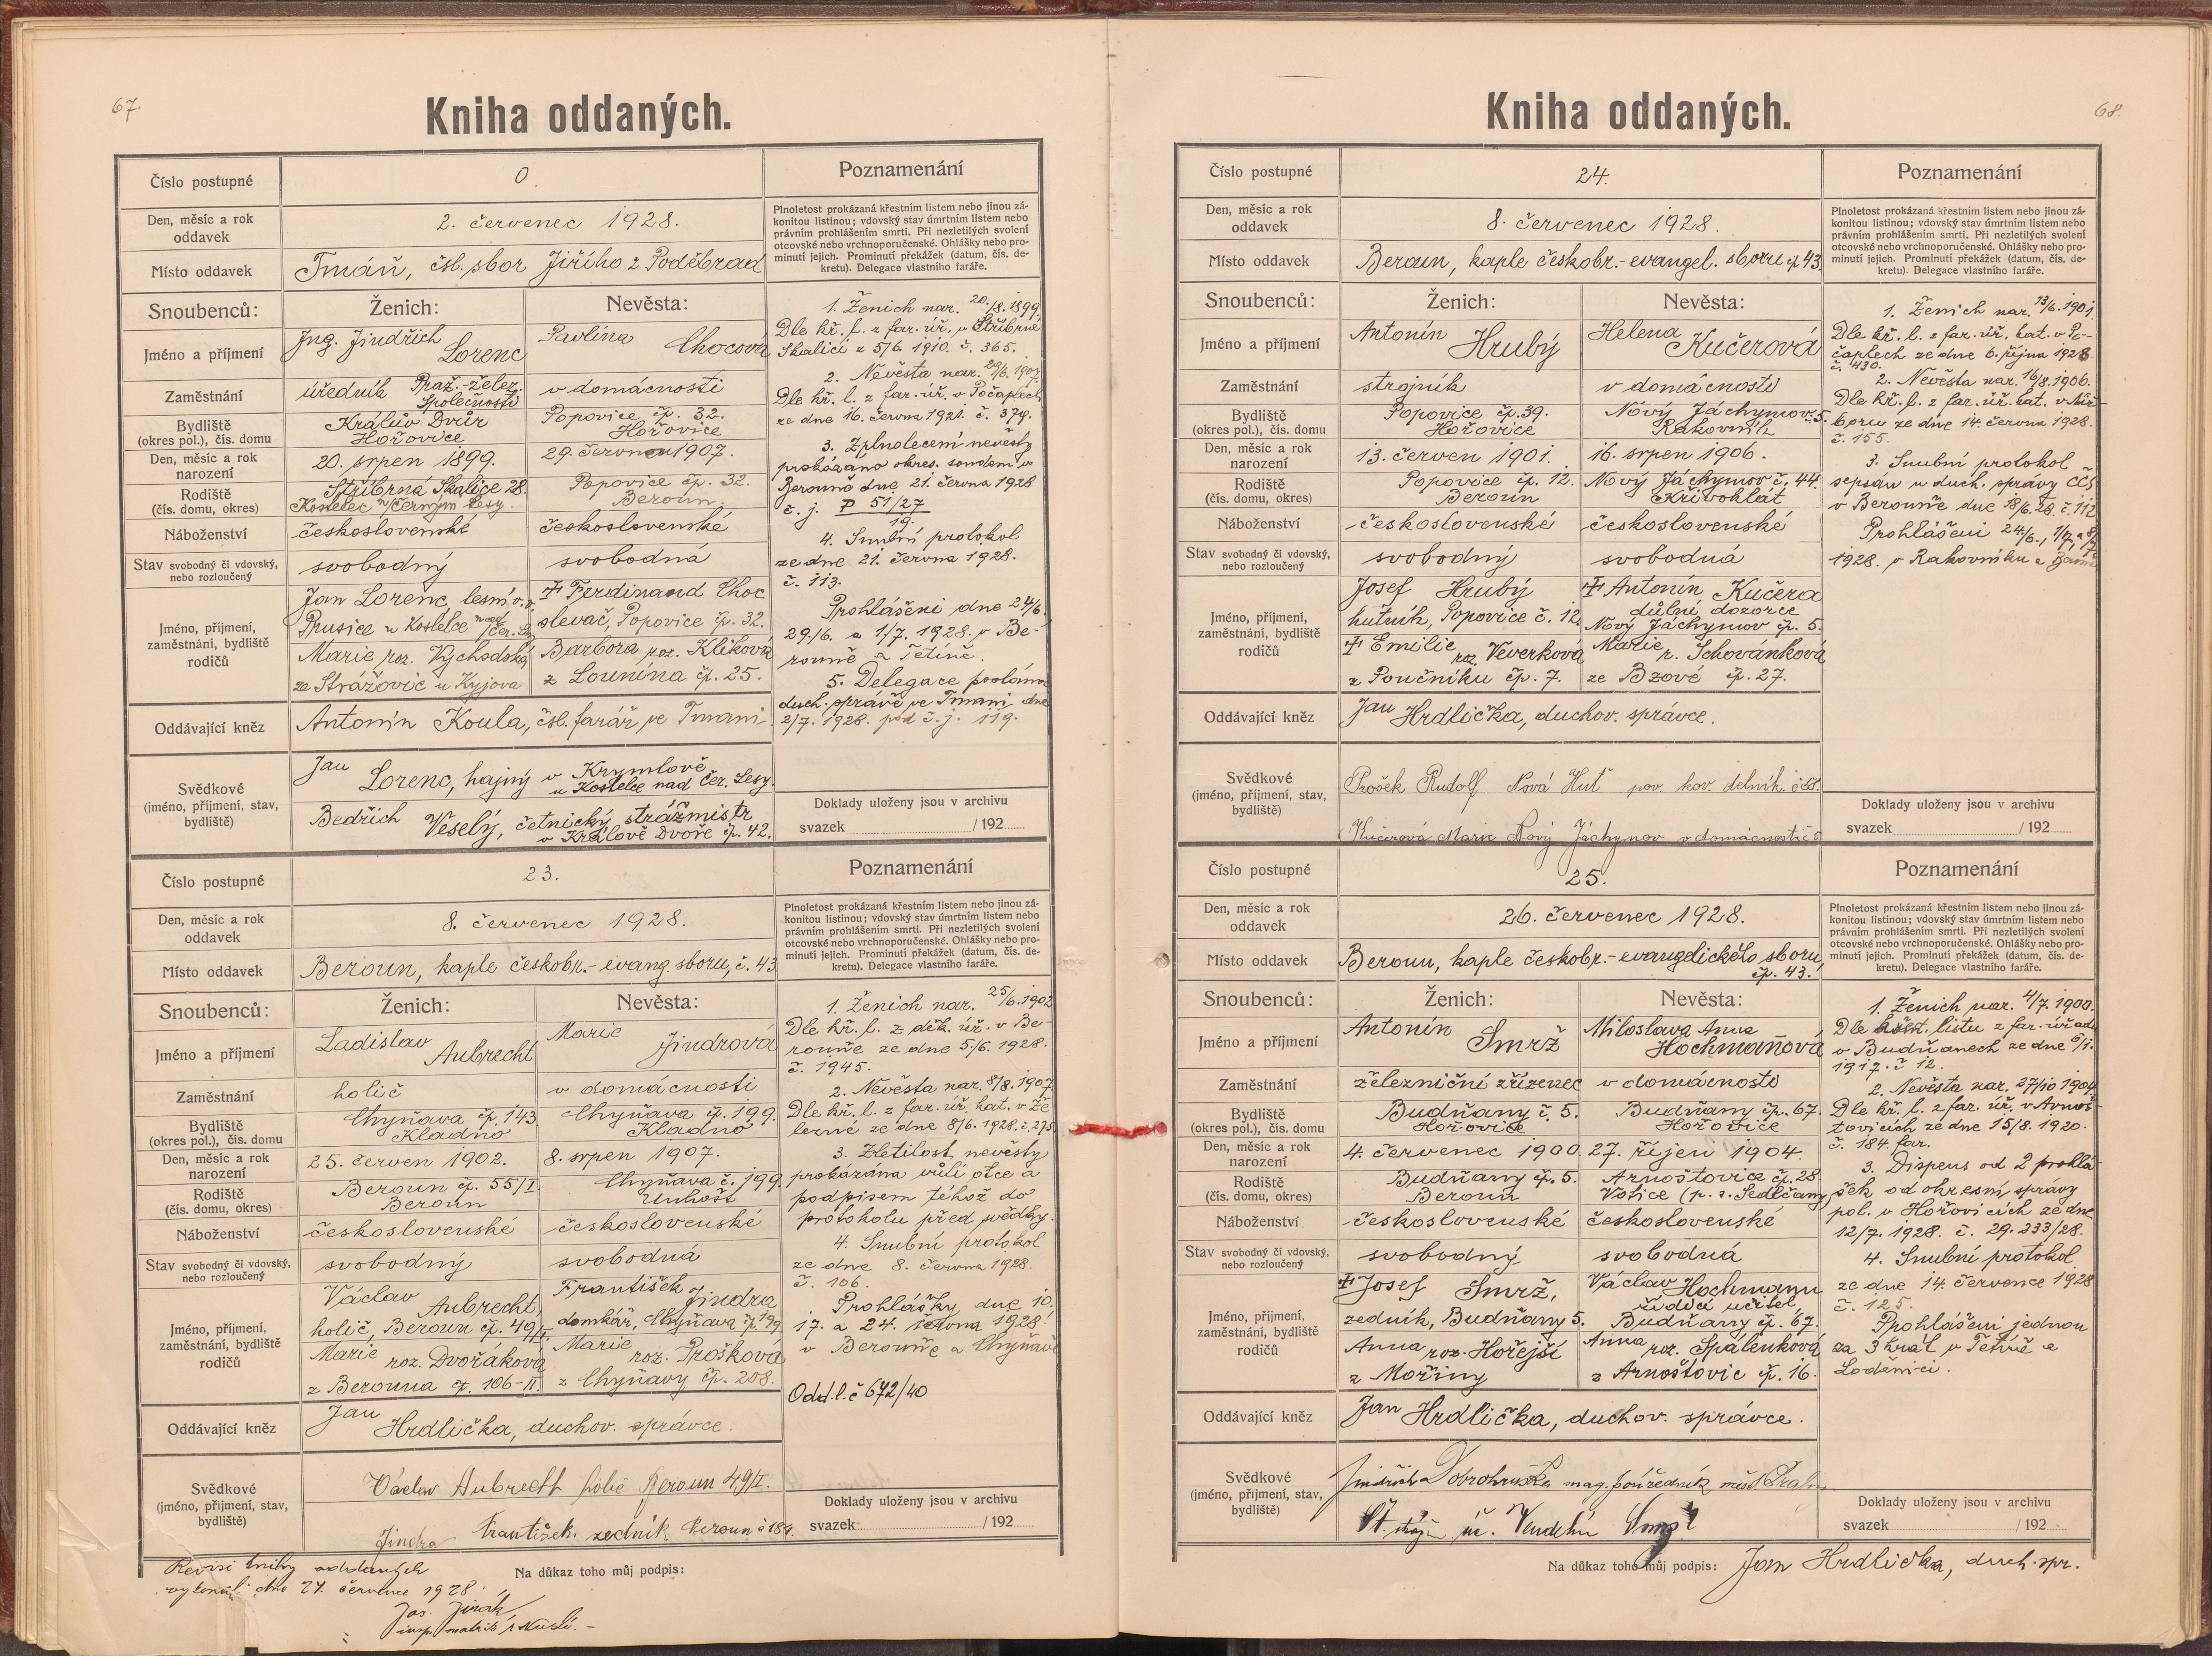 67.
Kniha oddaných.
Číslo postupné
0.
Poznamenání
Den, měsíc a rok
oddavek
2. červenec 1928.
Plnoletost prokázaná křestním listem nebo jinou zá-
konitou listinou; vdovský stav úmrtním listem nebo
právním prohlášením smrti. Při nezletilých svolení
otcovské nebo vrchnoporučenské. Ohlášky nebo pro-
minutí jejich. Prominutí překážek (datum, čís. de-
kretu). Delegace vlastního faráře.
Místo oddavek
Tmáň, čsl. sbor Jiřího z Poděbrad
Snoubenců:
Ženich:
Nevěsta:
Jméno a příjmení
Ing. Jindřich
Lorenc
Pavlína Chocová
Zaměstnání
úředník Praž.-želez.
Společnosti
v domácnosti
Bydliště
(okres pol.), čís. domu
Králův Dvůr
Hořovice
Popovice čp. 32.
Hořovice
Den, měsíc a rok
narození
20. srpen 1899.
29. červen 1907.
Rodiště
(čís. domu, okres)
Stříbrná Skalice 28.
Kostelec n/Černým Lesy.
Popovice čp. 32.
Beroun.
Náboženství
československé
československé
Stav svobodný či vdovský,
nebo rozloučený
svobodný
svobodná
Jméno, příjmení,
zaměstnání, bydliště
rodičů
Jan Lorenc, lesní
Prusice u Kostelce nad/Čer. L.
Marie roz. Východská
ze Strážovic u Kyjova
Ferdinand Choc
slevač, Popovice čp. 32.
Barbora roz. Klíková
z Lounína čp. 25.
Oddávající kněz
Antonín Koula, čsl. farář ve Tmani
Svědkové
(jméno, příjmení, stav,
bydliště)
Jan Lorenc, hajný v Krymlově
u Kostelce nad Čer. Lesy.
Bedřich Veselý, četnický strážmistr
v Králově Dvoře čp. 42.
1. Ženich nar. 20./8. 1899.
Dle kř. l. z far. úř. v Stříbrné
Skalici z 5/6. 1910. č. 365.
2. Nevěsta nar. 29/6. 1907.
Dle kř. l. z far. úř. v Počaplech
ze dne 16. června 1921. č. 379.
3. Zplnoletnění nevěsty
prokázáno okres. soudem v
Berouně dne 21. června 1928
č. j. P 51/27
19.
4. Snubní protokol
ze dne 21. června 1928.
č. 113.
Prohlášení dne 24/6.
29./6. a 1/7. 1928. v Be-
rouně a Tetíně.
5. Delegace poslána
duch. správě ve Tmani dne
2/7. 1928. pod č. j. 119.
Doklady uloženy jsou v archivu
svazek / 192
Číslo postupné
23.
Poznamenání
Den, měsíc a rok
oddavek
8. červenec 1928.
Plnoletost prokázaná křestním listem nebo jinou zá-
konitou listinou; vdovský stav úmrtním listem nebo
právním prohlášením smrti. Při nezletilých svolení
otcovské nebo vrchnoporučenské. Ohlášky nebo pro-
minutí jejich. Prominutí překážek (datum, čís. de-
kretu). Delegace vlastního faráře.
Místo oddavek
Beroun, kaple českobr.-evang. sboru, č. 43
Snoubenců:
Ženich:
Nevěsta:
Jméno a příjmení
Ladislav
Aubrecht
Marie
Jindrová
Zaměstnání
holič
v domácnosti
Bydliště
(okres pol.), čís. domu
Chyňava čp. 143.
Kladno
Chyňava čp. 199.
Kladno
Den, měsíc a rok
narození
25. červen 1902.
8. srpen 1907.
Rodiště
(čís. domu, okres)
Beroun čp. 55/I.
Beroun
Chyňava č. 199.
Unhošť
Náboženství
československé
československé
Stav svobodný či vdovský,
nebo rozloučený
svobodný
svobodná
Jméno, příjmení,
zaměstnání, bydliště
rodičů
Václav
Aubrecht,
holič, Beroun čp. 49/I.
Marie roz. Dvořáková
z Berouna čp. 106-II.
František Jindra
domkář, Chyňava čp. 199
Marie roz. Prošková
z Chyňavy čp. 208.
Oddávající kněz
Jan Hrdlička, duchov. správce.
Svědkové
(jméno, příjmení, stav,
bydliště)
Václav Aubrecht holič Beroun 49/I.
Jindra František. zedník Beroun č 189.
1. Ženich nar. 25/6. 1902
Dle kř. l. z děk. úř. v Be-
rouně ze dne 5./6. 1928.
č. 1945.
2. Nevěsta nar. 8/8. 1907.
Dle kř. l. z far. úř. kat. v Že-
lezné ze dne 8/6. 1928. č. 275
3. Zletilost nevěsty
prokázána vůlí otce a
podpisem téhož do
protokolu před svědky.
4. Snubní protokol
ze dne 8. června 1928.
č. 106.
Prohlášky dne 10,
17. a 24. června 1928.
v Berouně a Chyňavě
Odd.l.č 672/40
Doklady uloženy jsou v archivu
svazek / 192
Na důkaz toho můj podpis:
Revisi knihy oddaných
vykonal dne 27. července 1928
Jos. Jinák
68.
Kniha oddaných.
Číslo postupné
24.
Poznamenání
Den, měsíc a rok
oddavek
8. červenec 1928.
Plnoletost prokázaná křestním listem nebo jinou zá-
konitou listinou; vdovský stav úmrtním listem nebo
právním prohlášením smrti. Při nezletilých svolení
otcovské nebo vrchnoporučenské. Ohlášky nebo pro-
minutí jejich. Prominutí překážek (datum, čís. de-
kretu). Delegace vlastního faráře.
Místo oddavek
Beroun, kaple českobr.-evangel. sboru čp 43.
Snoubenců:
Ženich:
Nevěsta:
Jméno a příjmení
Antonín
Hrubý
Helena
Kučerová
Zaměstnání
strojník
v domácnosti
Bydliště
(okres pol.), čís. domu
Popovice čp. 39.
Hořovice
Nový Jáchymov 5.
Rakovník
Den, měsíc a rok
narození
13. červen 1901.
16. srpen 1906.
Rodiště
(čís. domu, okres)
Popovice čp. 12.
Beroun
Nový Jáchymov č. 44.
Křivoklát
Náboženství
československé
československé
Stav svobodný či vdovský,
nebo rozloučený
svobodný
svobodná
Jméno, příjmení,
zaměstnání, bydliště
rodičů
Josef Hrubý
hutník, Popovice č. 12.
Emilie
roz. Veverková
z Poučníku čp. 7.
Antonín Kučera
důlní dozorce
Nový Jáchymov čp. 5.
Marie
r. Schovánková
ze Bzové čp. 27.
Oddávající kněz
Jan Hrdlička, duchov. správce.
Svědkové
(jméno, příjmení, stav,
bydliště)
Prošek Rudolf Nová Huť pov. kov. dělník.
Kučerová Marie Nový Jáchymov v domácnosti č 5
1. Ženich nar. 13/6. 1901.
Dle kř. l. z far. úř. kat. v Po-
čaplech ze dne 6. října 1928
č. 430.
2. Nevěsta nar. 16/8. 1906.
Dle kř. l. z far. úř. kat. v Niž-
boru ze dne 14. června 1928.
č. 155.
3. Snubní protokol
sepsán u duch. správy ČČS
v Berouně dne 18/6. 28. č. 112
Prohlášení 24./6., 1/7. a 8/7.
1928. v Rakovníku a
Doklady uloženy jsou v archivu
svazek / 192
Číslo postupné
25.
Poznamenání
Den, měsíc a rok
oddavek
26. červenec 1928.
Plnoletost prokázaná křestním listem nebo jinou zá-
konitou listinou; vdovský stav úmrtním listem nebo
právním prohlášením smrti. Při nezletilých svolení
otcovské nebo vrchnoporučenské. Ohlášky nebo pro-
minutí jejich. Prominutí překážek (datum, čís. de-
kretu). Delegace vlastního faráře.
Místo oddavek
Beroun, kaple českobr.-evangelického sboru,
čp. 43.
Snoubenců:
Ženich:
Nevěsta:
Jméno a příjmení
Antonín
Smrž
Miloslava Anna
Hochmanová
Zaměstnání
železniční zřízenec
v domácnosti
Bydliště
(okres pol.), čís. domu
Budňany č. 5.
Hořovice
Budňany čp. 67.
Hořovice
Den, měsíc a rok
narození
4. červenec 1900.
27. říjen 1904.
Rodiště
(čís. domu, okres)
Budňany čp. 5.
Beroun
Arnoštovice čp. 28.
Votice (p. s. Sedlčany)
Náboženství
československé
československé
Stav svobodný či vdovský,
nebo rozloučený
svobodný
svobodná
Jméno, příjmení,
zaměstnání, bydliště
rodičů
Josef Smrž,
zedník, Budňany 5.
Anna roz. Hořejší
z Mořiny
Václav Hochmann
řídící učitel,
Budňany čp. 67.
Anna roz. Spálenková
z Arnoštovic čp. 16.
Oddávající kněz
Jan Hrdlička, duchov. správce.
Svědkové
(jméno, příjmení, stav,
bydliště)
Jindřich Dobrohruška mag. pouředník
Vendelín Smrž
1. Ženich nar. 4/7. 1900.
Dle křest. listu z far. úřadu
v Budňanech ze dne 6/1.
1917. č 12.
2. Nevěsta nar. 27/10 1904.
Dle kř. l. z far. úř. v Arnoš-
tovicích ze dne 15/8. 1920.
č. 184. far.
3. Dispens od 2 prohlá-
šek od okresní správy
pol. v Hořovicích ze dne
12/7. 1928. č. 29.233/28.
4. Snubní protokol
ze dne 14. července 1928
č. 125.
Prohlášení jednou
za 3krát v Tetíně a
Loděnici.
Doklady uloženy jsou v archivu
svazek / 192
Na důkaz toho můj podpis: Jan Hrdlička, duch. spr.